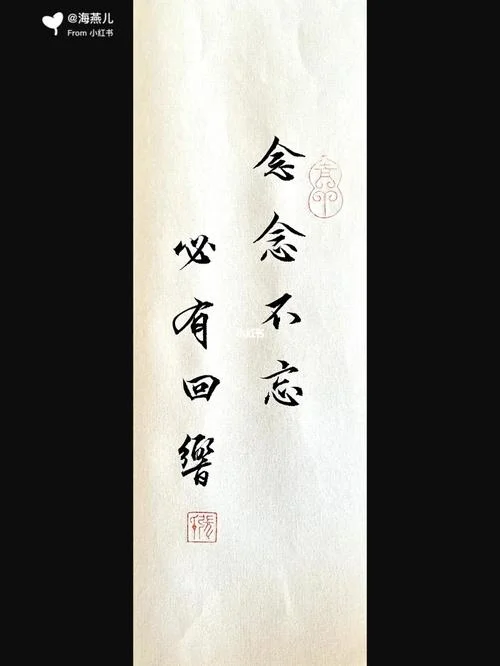 @海燕儿
From 小红书
念念不忘
必有回響
小红书